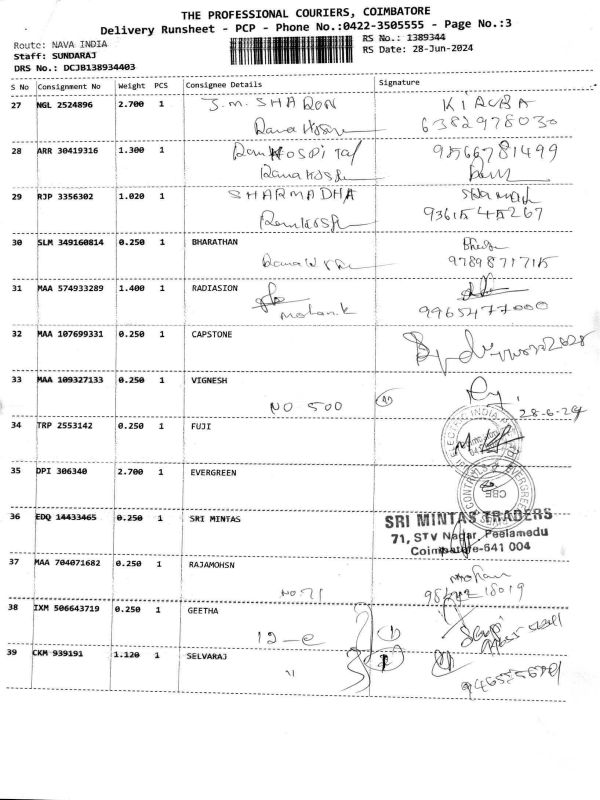 THE PROFESSIONAL COURIERS, COIMBATORE
Delivery Runsheet - PCP - Phone No.:0422-3505555 - Page No.:3
Route: NAVA INDIA
RS No.: 1389344
Staff: SUNDARAJ
RS Date: 28-Jun-2024
DRS No.: DCJB138934403
S No Consignment No Weight PCS Consignee Details Signature
27 NGL 2524896 2.700 1 J.M. SHARON
6382978030
28 ARR 30419316 1.300 1 HOSPITAL 9566781499
29 RJP 3356302 1.020 1 SHARMADHA
9361545267
30 SLM 349160814 0.250 1 BHARATHAN
9789871715
31 MAA 574933289 1.400 1 RADIASION
Mohan.k 9965477000
32 MAA 107699331 0.250 1 CAPSTONE
33 MAA 109327133 0.250 1 VIGNESH
NO 500 28-6-24
34 TRP 2553142 0.250 1 FUJI
35 DPI 306340 2.700 1 EVERGREEN
CONTROLS EVERGREEN
CBE
36 EDQ 14433465 0.250 1 SRI MINTAS SRI MINTAS TRADERS
71, STV Nagar, Peelamedu
Coimbatore-641 004
37 MAA 704071682 0.250 1 RAJAMOHSN
NO.71 Mohan
38 IXM 506643719 0.250 1 GEETHA
12-e
39 CKM 939191 1.120 1 SELVARAJ
"